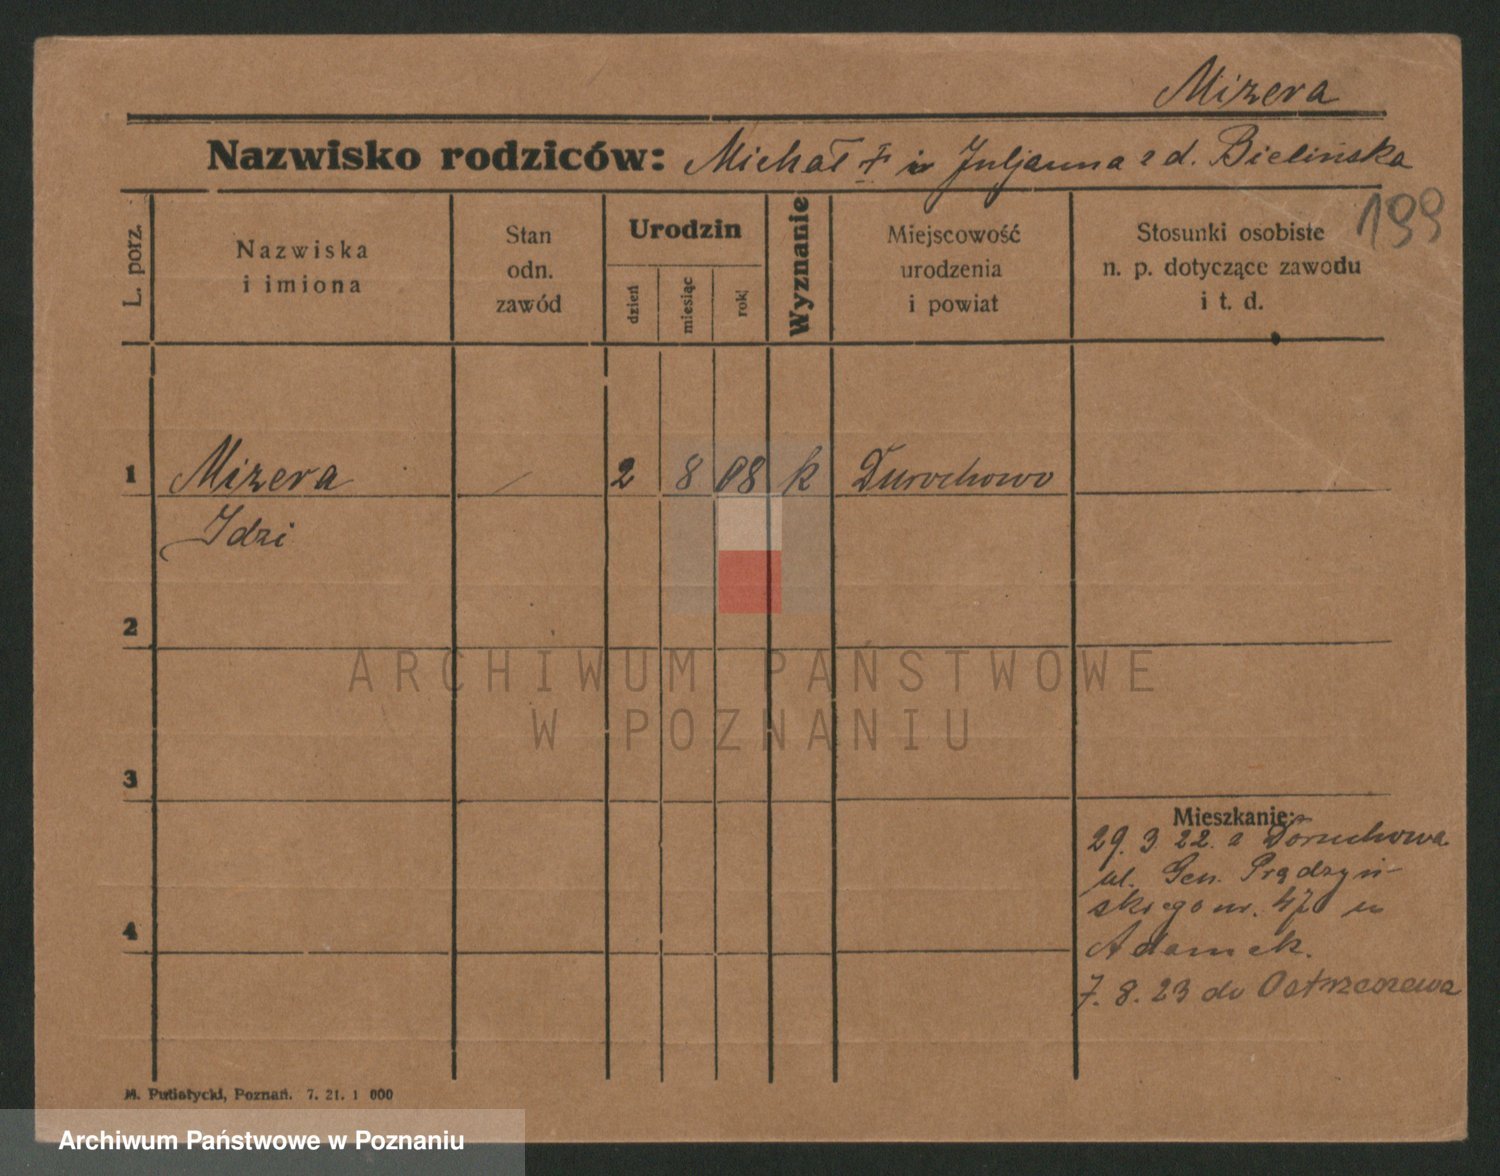 Mizera
Nazwisko rodziców: Michał † i Juljanna z d. Bielińska
199
L. porz.
Nazwiska
i imiona
Stan
odn.
zawód
Urodzin
dzień
miesiąc
rok
Wyznanie
Miejscowość
urodzenia
i powiat
Stosunki osobiste
n. p. dotyczące zawodu
i t. d.
1 Mizera 2 8 08 k Duruchowo
Idzi
2
3
4
Mieszkanie:
29. 3 22. z Doruchowa
ul. Gen. Prądzyń-
skiego nr. 47 u
Adamek.
7. 8. 23 do Ostrzeszewa
M. Putiatycki, Poznań. 7. 21. 1 000
ARCHIWUM PAŃSTWOWE
W POZNANIU
Archiwum Państwowe w Poznaniu